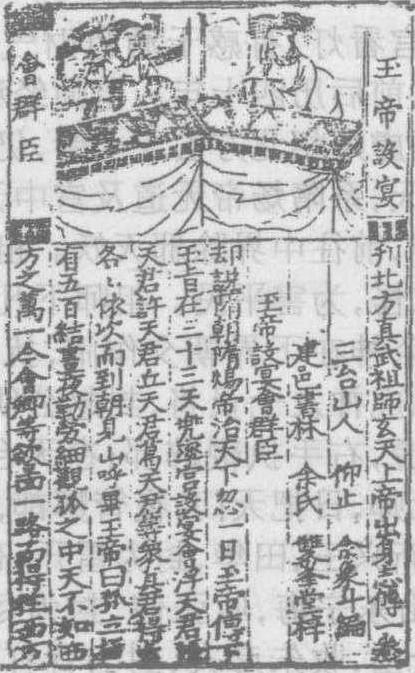 玉帝設宴
會群臣
刋北方真武祖師玄天上帝出身志傳一卷
三台山人 仰止 余象斗編
建邑書林 余氏 雙峯堂梓
玉帝設宴會群臣
却說隋朝隋煬帝治天下忽一日玉帝傳下
玉旨在三十三天兜率宮設宴會浮天君
天君許天君丘天君葛天君等衆真君得
各〻依次而到朝見山呼畢玉帝曰孤立
有五百結晝夜勤勞細觀孤之中天不如西
方之萬一今會卿等欲面一路西方